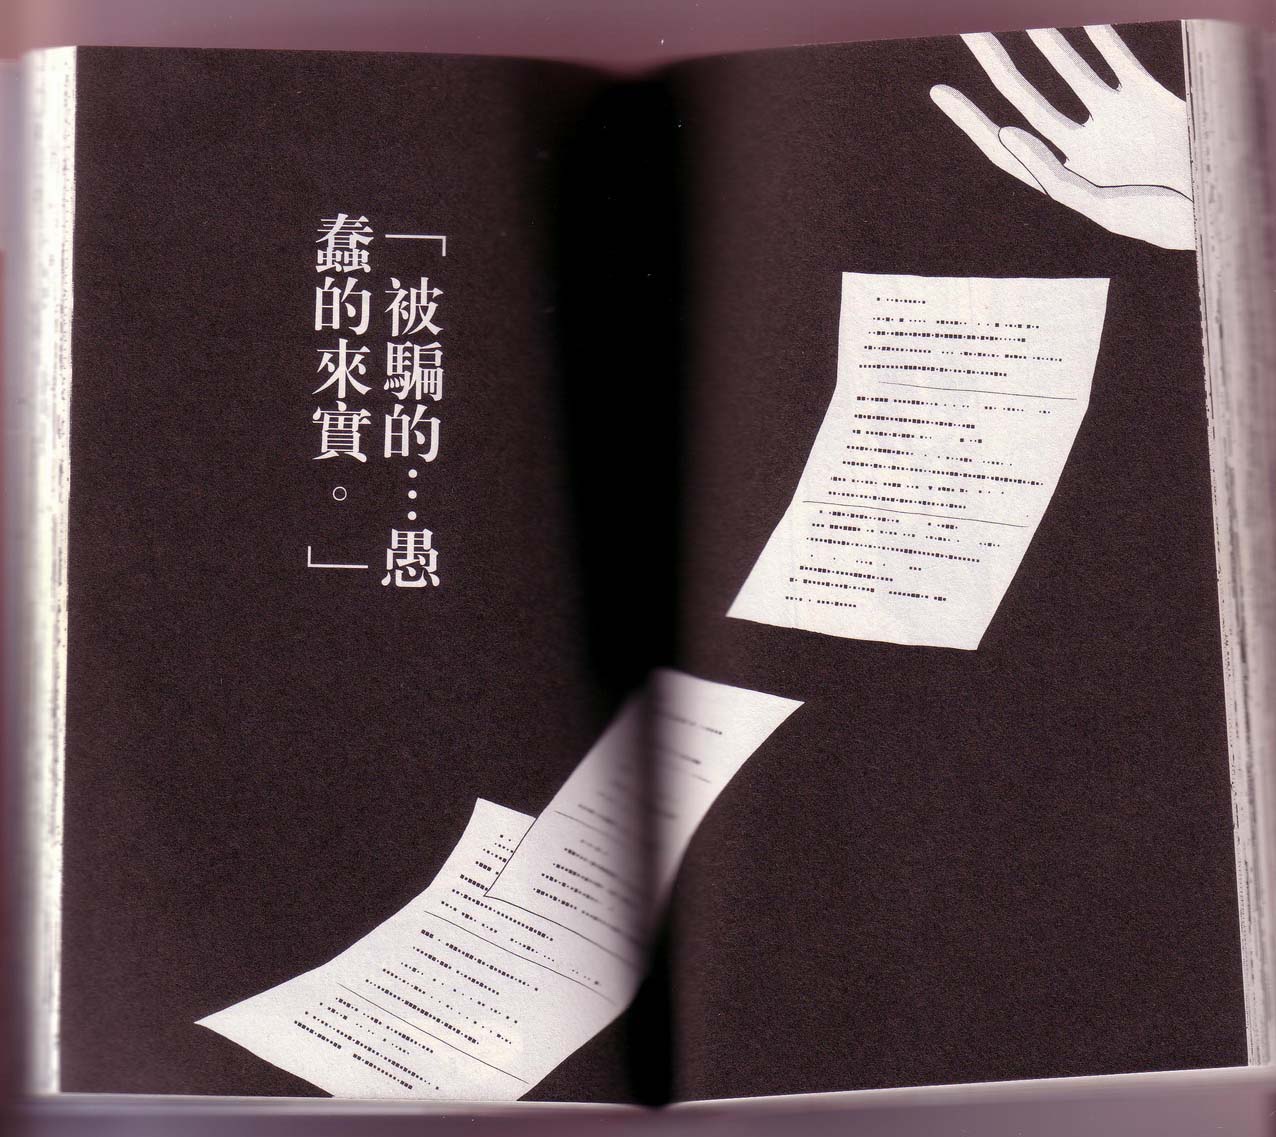 「被騙的…愚
蠢的來實。」